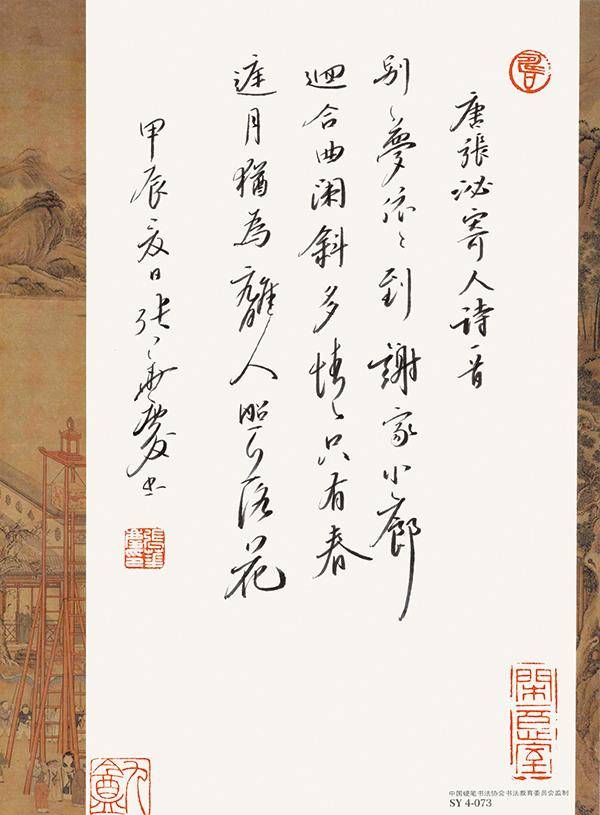 唐張泌寄人诗一首
别夢依〻到謝家小廊
迴合曲阑斜多情只有春
庭月猶為離人照落花
甲辰夏日张華慶书
中国硬笔书法协会书法教育委员会监制
SY 4-073